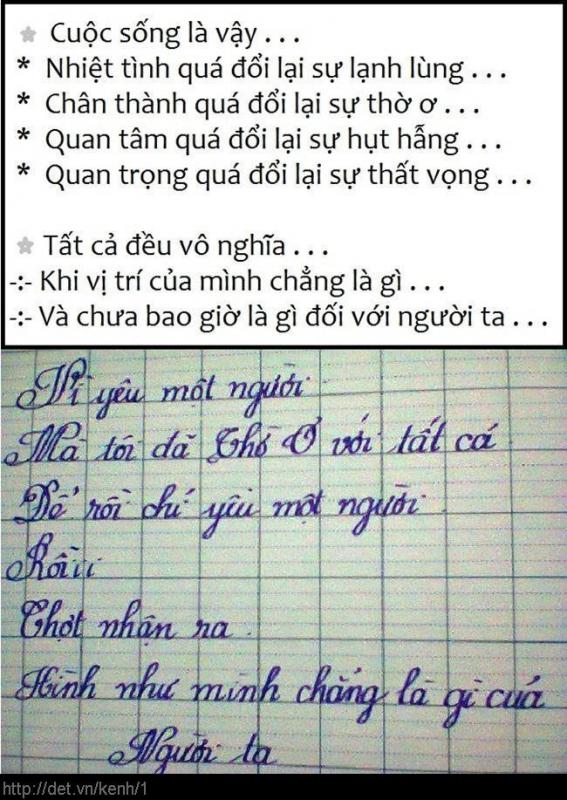 Cuộc sống là vậy . . .
* Nhiệt tình quá đổi lại sự lạnh lùng . . .
* Chân thành quá đổi lại sự thờ ơ . . .
* Quan tâm quá đổi lại sự hụt hẫng . . .
* Quan trọng quá đổi lại sự thất vọng . . .
Tất cả đều vô nghĩa . . .
-:- Khi vị trí của mình chẳng là gì . . .
-:- Và chưa bao giờ là gì đối với người ta . . .
Vì yêu một người
Mà tôi đã Thờ Ơ với tất cả
Để rồi chỉ yêu một người
Rồiìi
Chợt nhận ra
Hình như mình chẳng là gì của
Người ta
http://det.vn/kenh/1